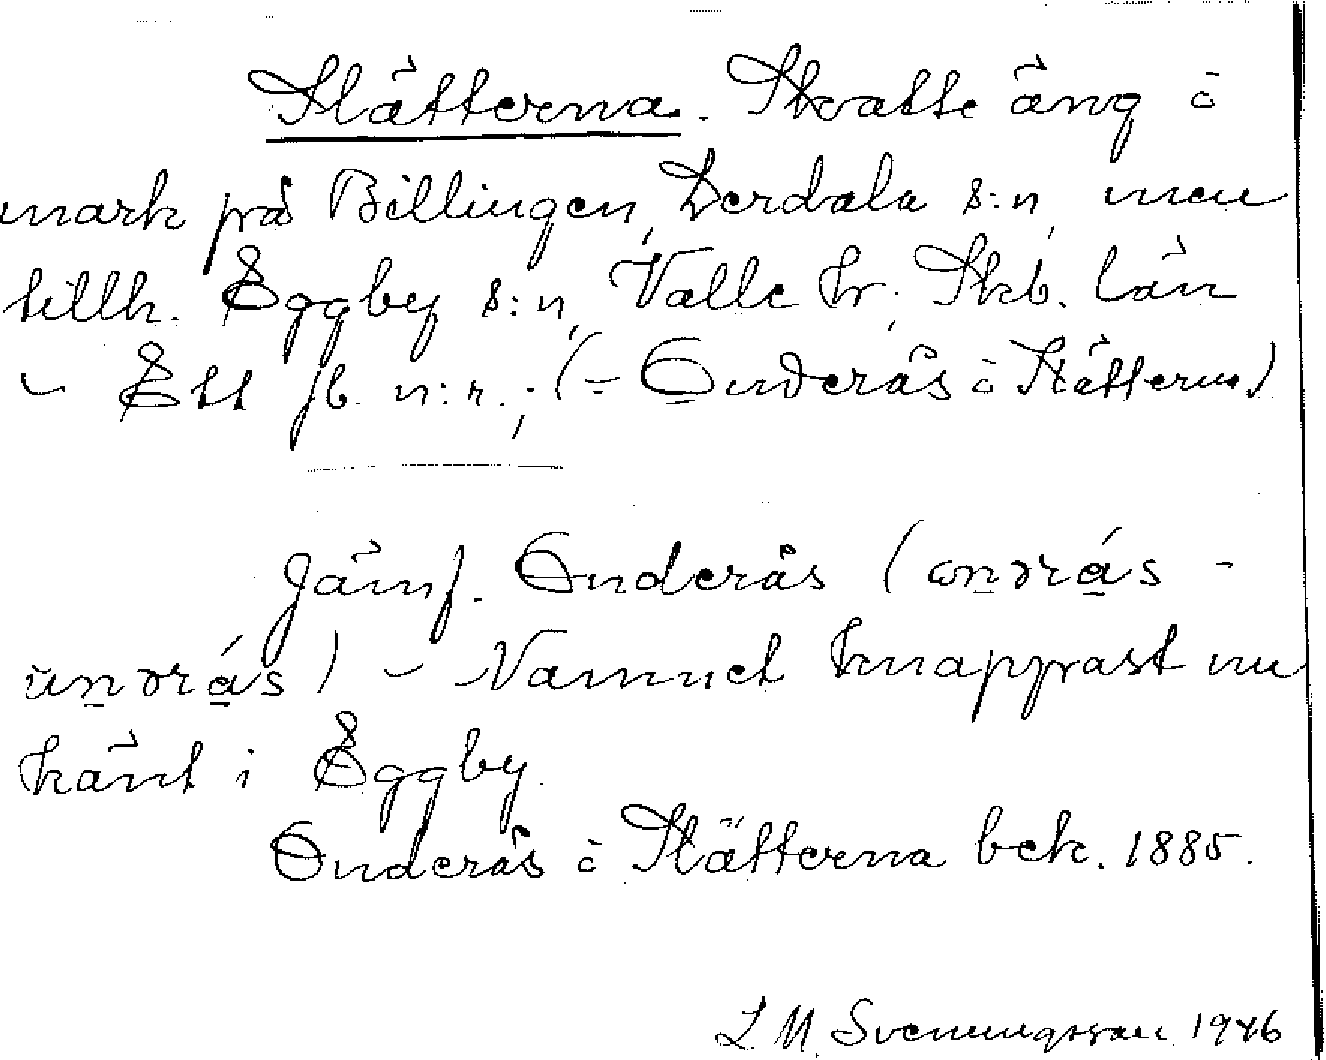 Slätterna. Skatte äng o
mark på Billingen, Derdala s:n, men
tillh. Eggby s:n, Valle hr, Skb. län
– Ett jb. n:r.; (= Onderås o Slätterna)
Jämf. Onderås (ωndrás -
undrás) – Namnet knappast nu
känt i Eggby.
Onderås o Slätterna bek. 1885.
L M Svenungsson 1946